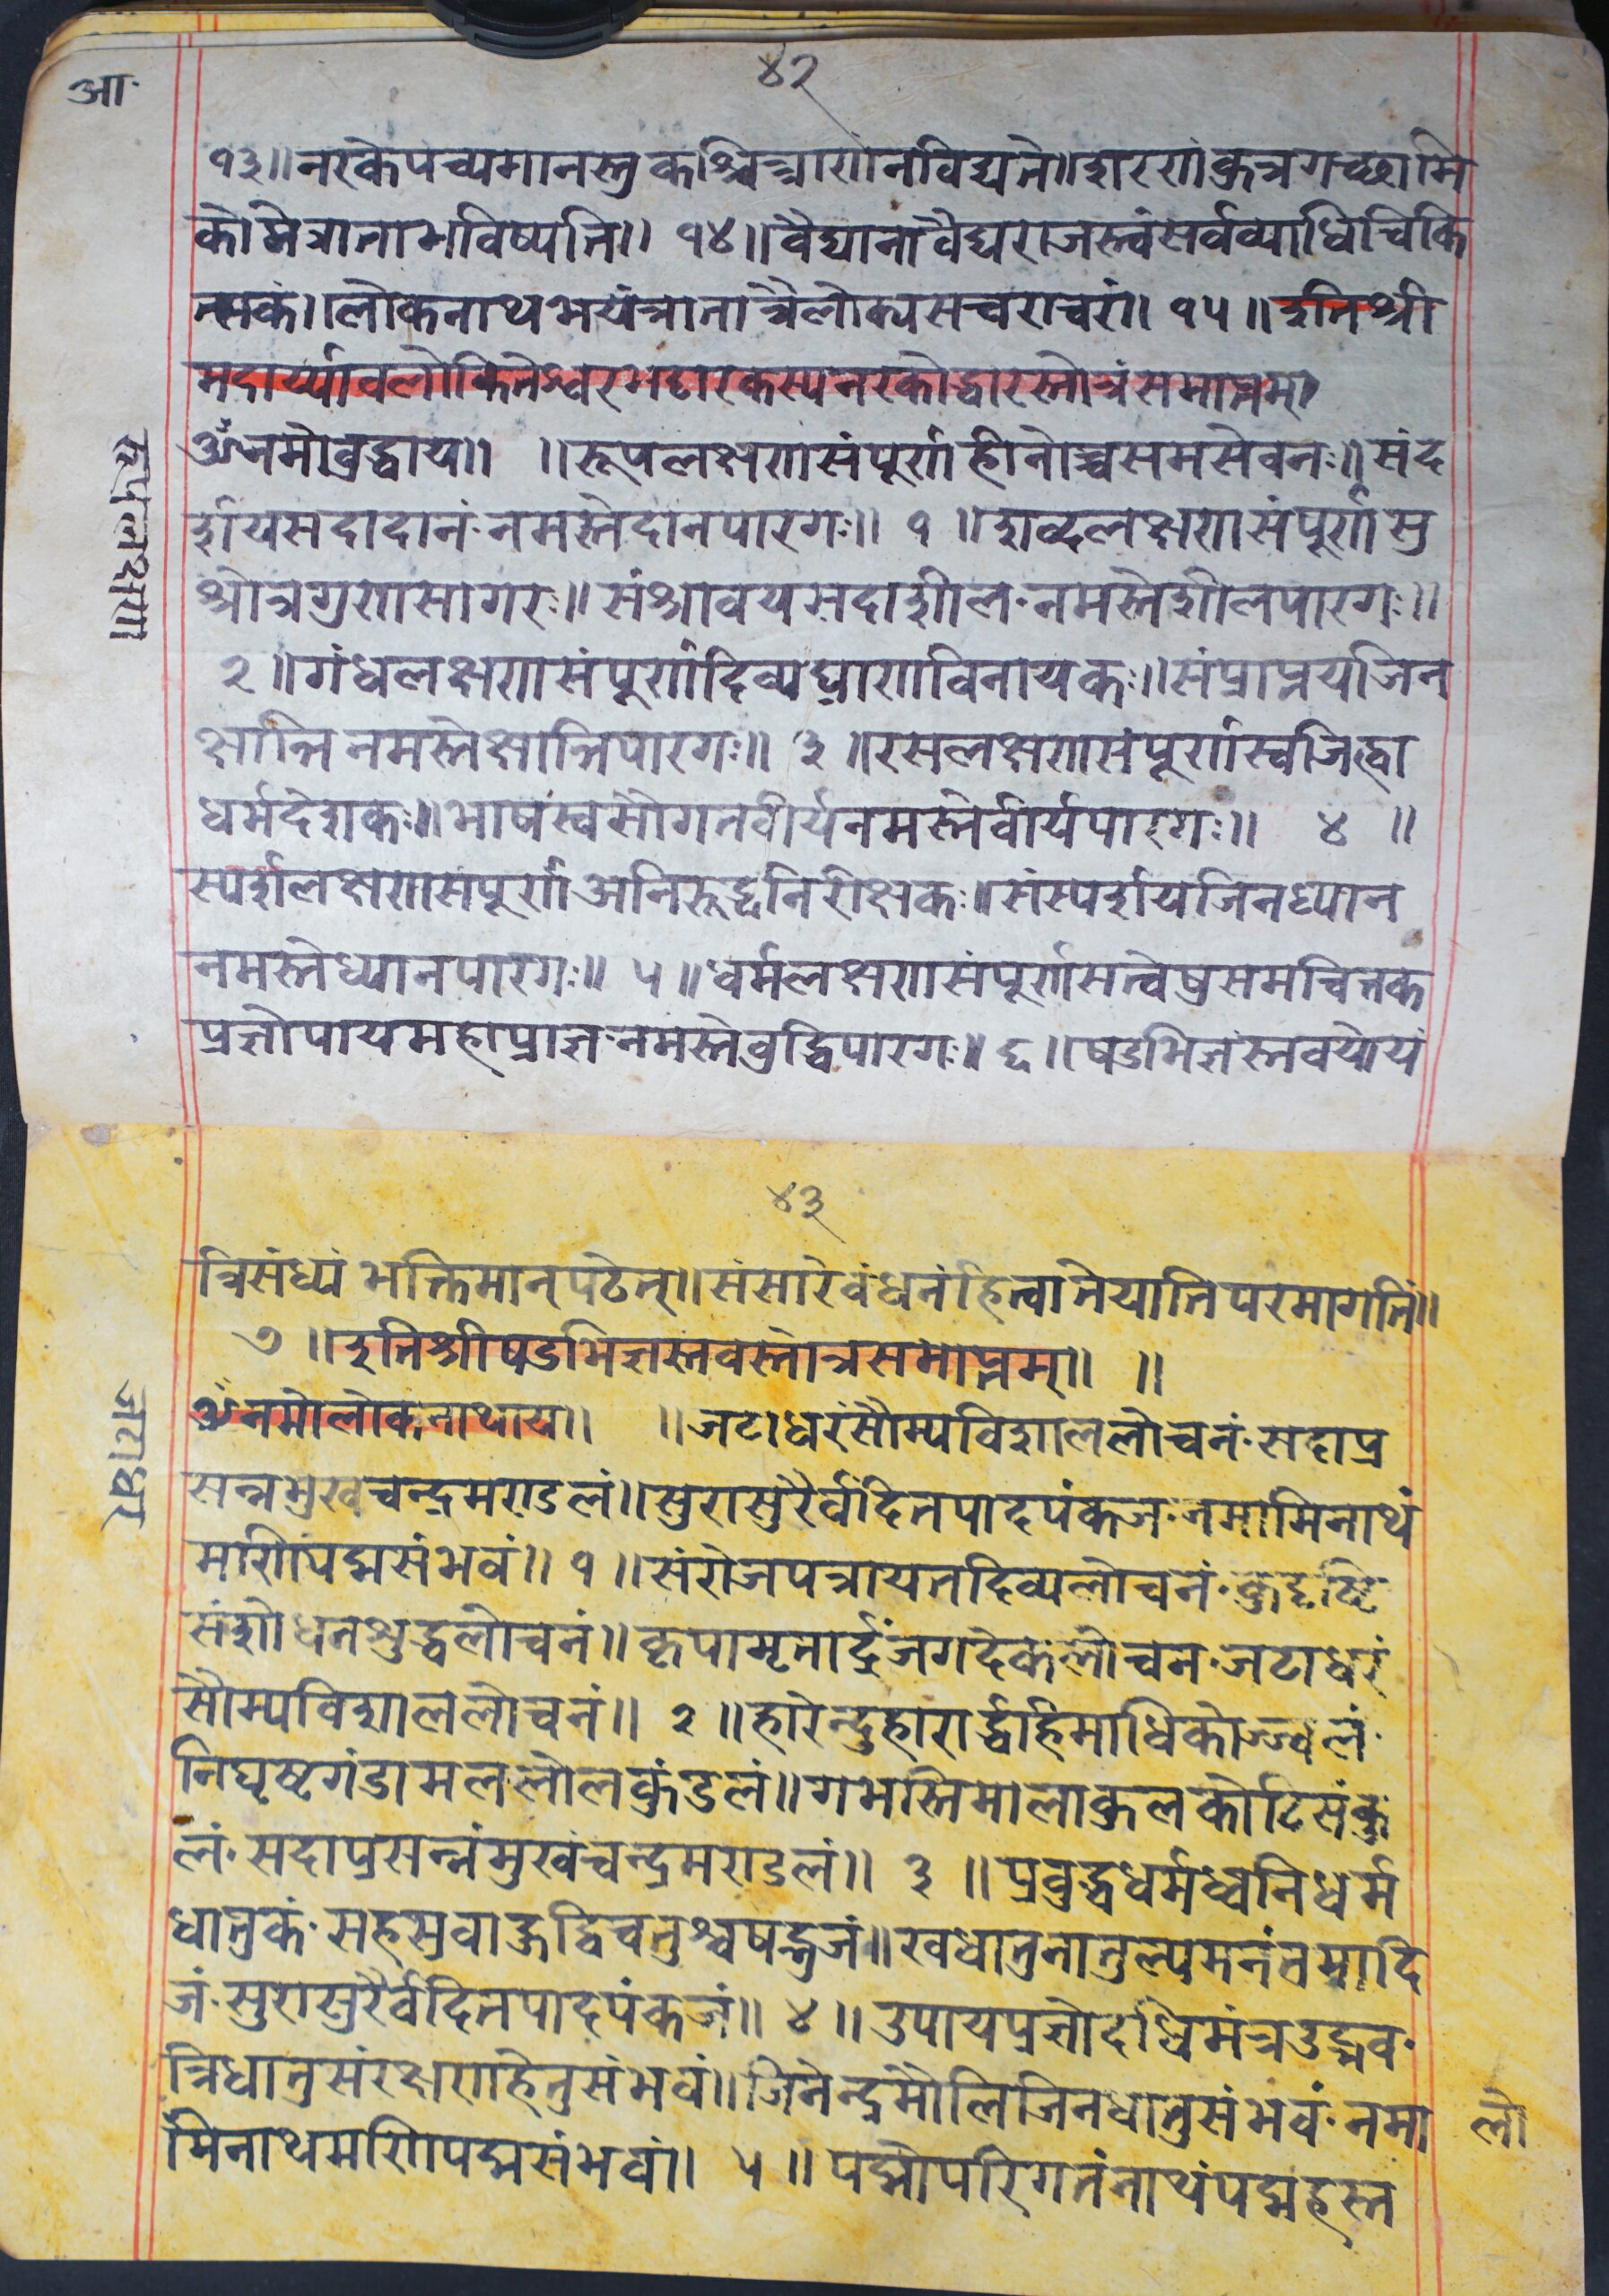 ४२
आ.
१३॥नरकेपच्यमानस्तुकश्चित्त्राणोनविद्यते॥शरणंकुत्रगच्छामि
कोमेत्राताभविष्यति॥ १४॥वैद्यानांवैद्यराजस्त्वंसर्वव्याधिचिकि
त्सकं॥लोकनाथभयंत्रातात्रैलोक्यसचराचरं॥ १५॥इतिश्री
मदार्य्यावलोकितेश्वरभट्टारकस्यनरकोद्धारस्तोत्रंसमाप्तम्॥
ॐनमोबुद्धाय॥ ॥रूपलक्षणसंपूर्णहीनोच्चसमसेवनः॥संद
र्शयसदादानं॰नमस्तेदानपारगः॥ १ ॥शब्दलक्षणसंपूर्णसु
श्रोत्रगुणसागरः॥संश्रावयसदाशील॰नमस्तेशीलपारगः॥
२॥गंधलक्षणसंपूर्णदिव्यघ्राणविनायकः॥संप्राप्नयजिन
क्षान्तिनमस्तेक्षान्तिपारगः॥ ३ ॥रसलक्षणसंपूर्णस्वजिह्वा
धर्मदेशकः॥भाषस्वसौगतवीर्यनमस्तेवीर्यपारगः॥ ४ ॥
स्पर्शलक्षणसंपूर्णअनिरूद्धनिरीक्षकः॥संस्पर्शयजिनध्यान
नमस्तेध्यानपारगः॥ ५॥धर्मलक्षणसंपूर्णसत्वेषुसमचित्तक
प्रज्ञोपायमहाप्राज्ञ॰नमस्तेबुद्धिपारगः॥ ६॥षडभिज्ञस्तवयोयं
रूपलक्षण
४३
त्रिसंध्यं भक्तिमान्पठेत्॥संसारेवंधनंहित्वातेयान्तिपरमागतिं॥
७ ॥इतिश्रीषडभिज्ञस्तवस्तोत्रसमाप्तम्॥ ॥
ॐनमोलोकनाथाय॥ ॥जटाधरंसौम्यविशाललोचनं॰सदाप्र
सन्नमुखचन्द्रमण्डलं॥सुरासुरैर्वंदितपादपंकज॰नमामिनाथं
मणिपद्मसंभवं॥ १ ॥संरोजपत्रायतदिव्यलोचनं॰कुदृष्टि
संशोधनशुद्धलोचनं॥कृपामृतार्द्रंजगदेकलोचन॰जटाधरं
सौम्यविशाललोचनं॥ २ ॥हारेन्दुहारार्द्धहिमाधिकोज्ज्वलं॰
निघृष्टगंडामललोलकुंडलं॥गभस्तिमालाकुलकोटिसंकु
लं॰सदाप्रसन्नंमुखंचन्द्रमण्डलं॥ ३ ॥प्रबुद्धधर्मध्वनिधर्म
धातुकं॰सहस्रबाहुद्विचतुश्चषद्भुजं॥खधातुनातुल्यमनंतमादि
जं॰सुरासुरैर्वंदितपादपंकजं॥ ४ ॥उपायप्रज्ञोदधिमंत्रउद्भव॰
त्रिधातुसंरक्षणहेतुसंभवं॥जिनेन्द्रमौलिजिनधातुसंभवं॰नमा
लो
मिनाथमणिपद्मसंभवं॥ ५ ॥पद्मोपरिगतंनाथंपद्महस्त
जटाधर